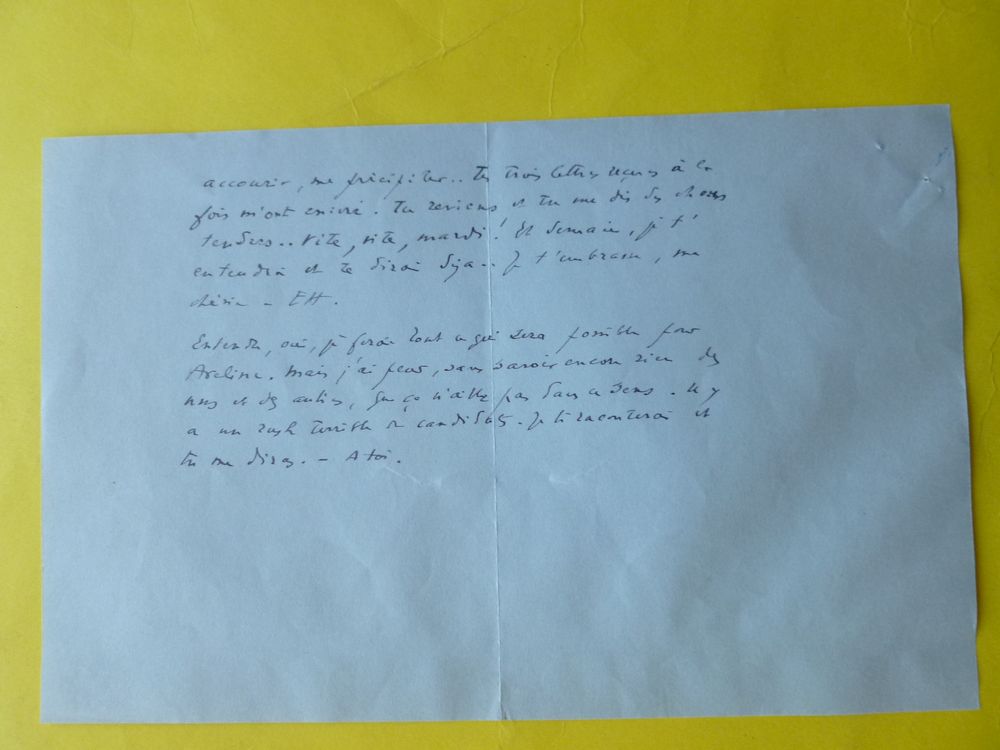 accourir, me précipiter.. Tes trois lettres reçues à la
fois m'ont enivré. Tu reviens et tu me dis des choses
tendres.. Vite, vite, mardi! Et demain, je t'
entendrai et te dirai déjà.. Je t'embrasse, ma
chérie - EH.
Entendu, oui, je ferai tout ce qui sera possible pour
Aveline. Mais j'ai peur, sans savoir encore rien des
uns et des autres, que ça n'aille pas dans ce sens. Il y
a un rush terrible de candidats. Je te raconterai et
tu me diras. - A toi.